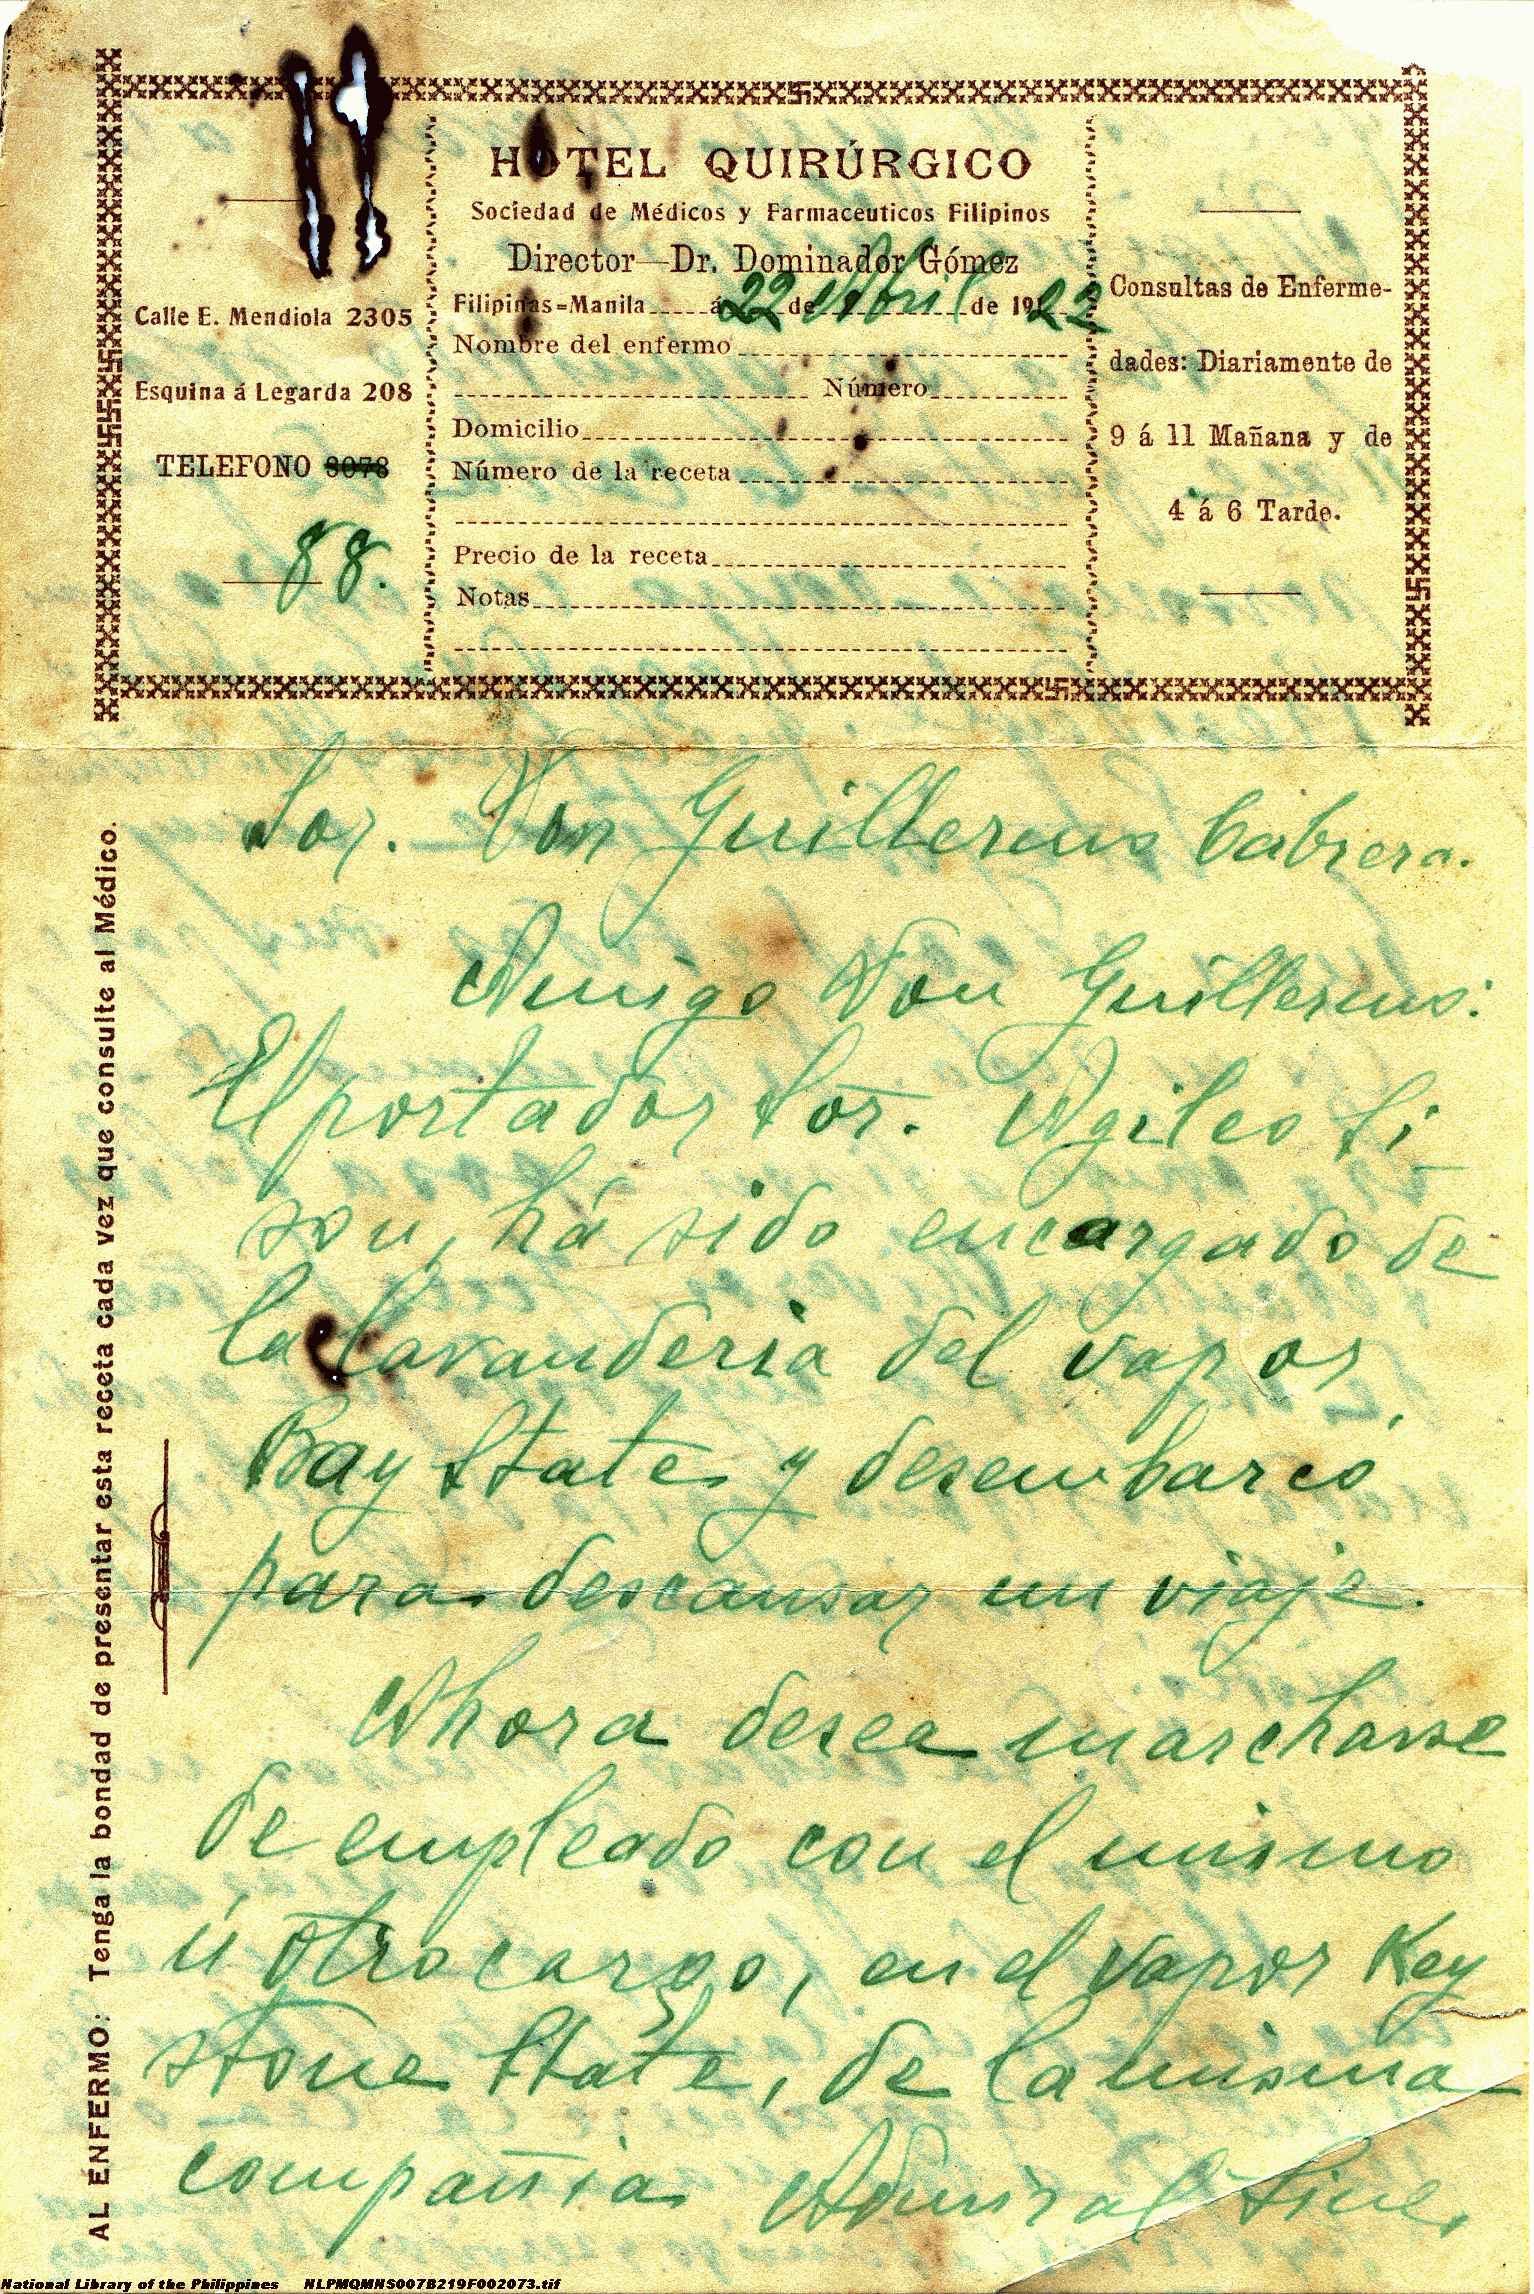 HOTEL QUIRÚRGICO
Sociedad de Médicos y Farmaceuticos Filipinos
Director—Dr. Dominador Gómez
Filipinas=Manila á 22 de Abril de 1922
Nombre del enfermo
Número
Domicilio
Número de la receta
Precio de la receta
Notas
Calle E. Mendiola 2305
Esquina á Legarda 208
TELEFONO 8078
88.
Consultas de Enferme-
dades: Diariamente de
9 á 11 Mañana y de
4 á 6 Tarde.
AL ENFERMO: Tenga la bondad de presentar esta receta cada vez que consulte al Médico.
Sor. Don Guillermo Cabrera.
Amigo Don Guillermo:
El portador Sor. Agileo Si_
son, há sido encargado de
la lavanderia del vapor
Bay State y desembarcó
para descansar un viaje.
Ahora desea marcharse
de empleado con el mismo
ú otro cargo, en el vapor Key
stone State, de la misma
compañia Admiral Line,
National Library of the Philippines NLPMQMNS007B219F002073.tif